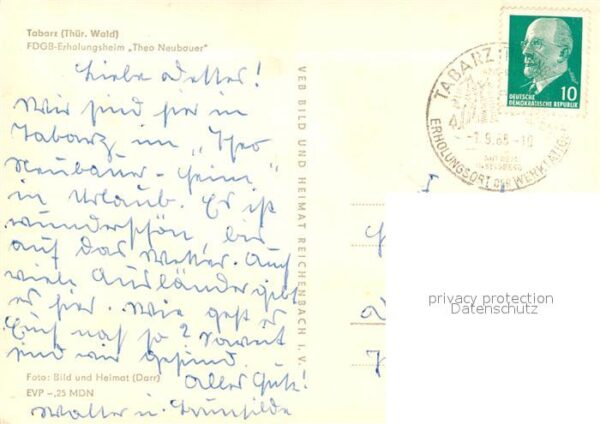 Tabarz (Thür. Wald)
FDGB-Erholungsheim „Theo Neubauer"
Liebe
Wir sind hier in
Tabarz im „Theo
Neubauer-Heim"
in Urlaub. Es ist
wunderschön, bis
auf das Wetter. Auch
viele Ausländer gibt
es hier. Wie geht es
Euch noch so? Soweit
sind wir gesund.
Alles Gute!
Walter u. Brunhilde
Foto: Bild und Heimat (Darr)
EVP -,25 MDN
VEB BILD UND HEIMAT REICHENBACH I. V.
TABARZ
ERHOLUNGSORT DER WERKTÄTIGEN
DEUTSCHE
DEMOKRATISCHE REPUBLIK
10
privacy protection
Datenschutz